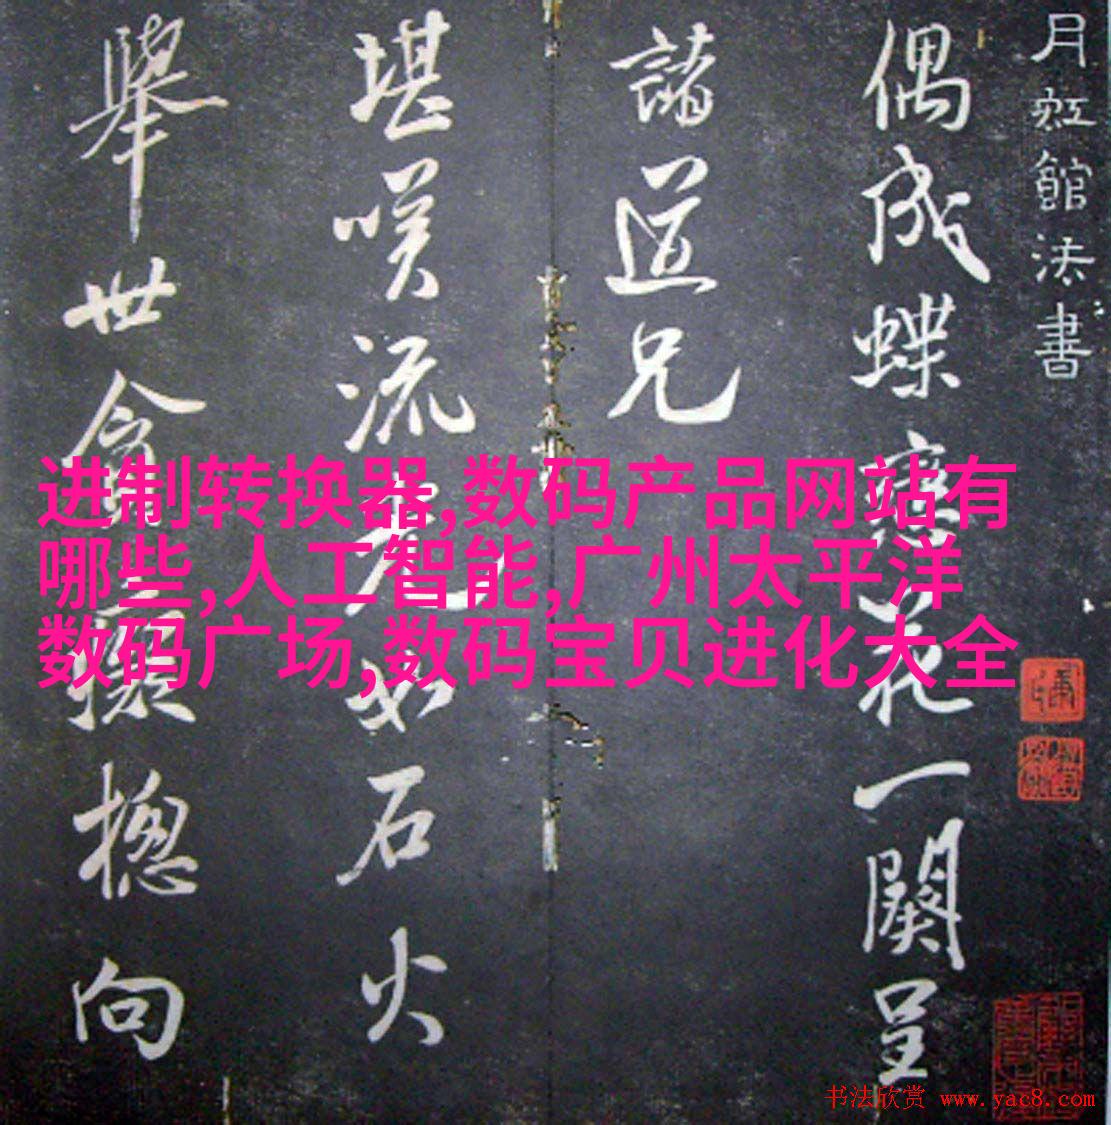 月虹館法書
偶成蝶戀花一闋呈
諸道兄
堪嘆流光如石火
舉世貪
揔向
进制转换器,数码产品网站有
哪些,人工智能,广州太平洋
数码广场,数码宝贝进化大全
书法欣赏 www.yac8.com